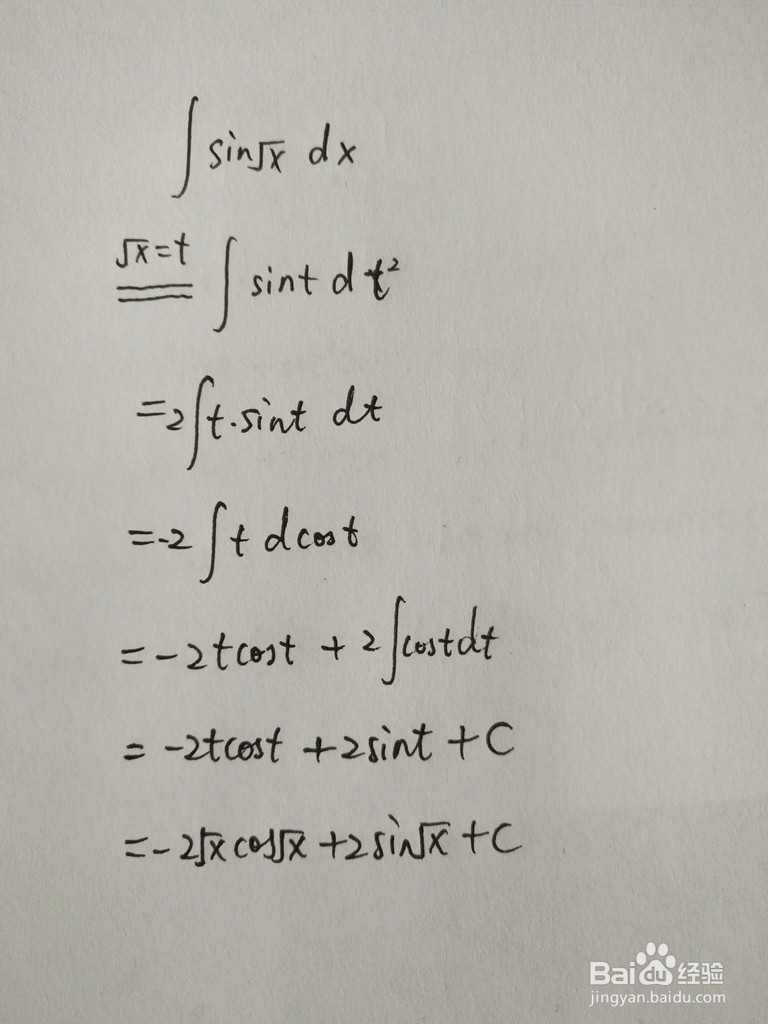 ∫ sin√x dx
√x=t
∫ sint d t²
=2∫t·sint dt
=-2∫t dcost
=-2tcost + 2∫costdt
=-2tcost +2sint +C
=-2√x cos√x +2sin√x +C
Baidu经验
jingyan.baidu.com